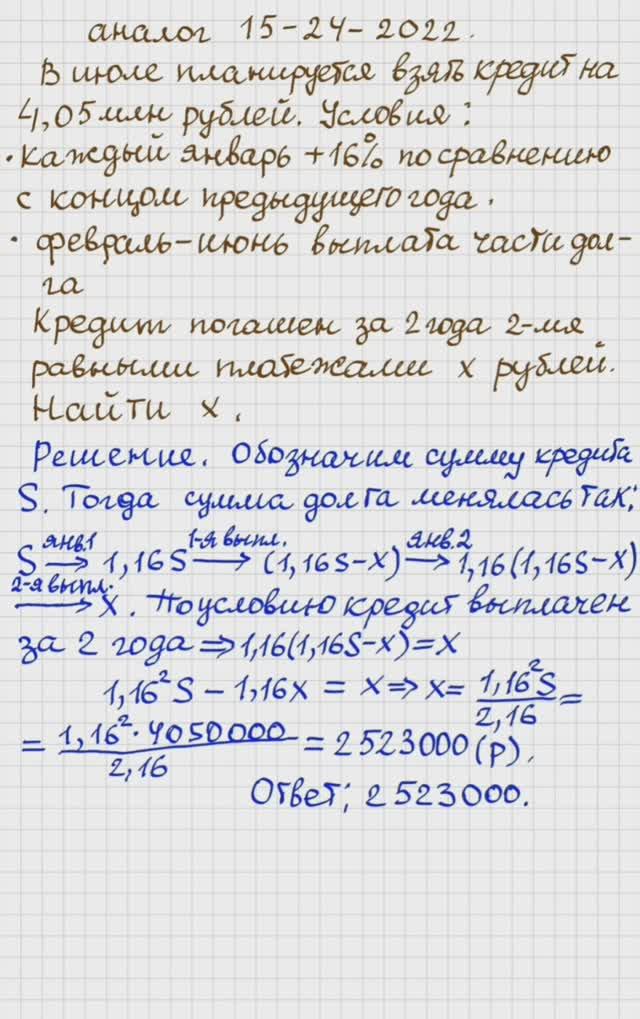 аналог 15-24-2022.
В июле планируется взять кредит на
4,05 млн рублей. Условия:
• каждый январь +16% по сравнению
с концом предыдущего года.
• февраль-июнь выплата части дол-
га
Кредит погашен за 2 года 2-мя
равными платежами x рублей.
Найти x.
Решение. Обозначим сумму кредита
S. Тогда сумма долга менялась так:
S —янв.1→ 1,16S —1-я выпл.→ (1,16S-x) —янв.2→ 1,16(1,16S-x)
—2-я выпл.→ x. По условию кредит выплачен
за 2 года ⇒ 1,16(1,16S-x)=x
1,16²S - 1,16x = x ⇒ x = 1,16²S / 2,16 =
= 1,16²·4050000 / 2,16 = 2523000 (р).
Ответ; 2523000.